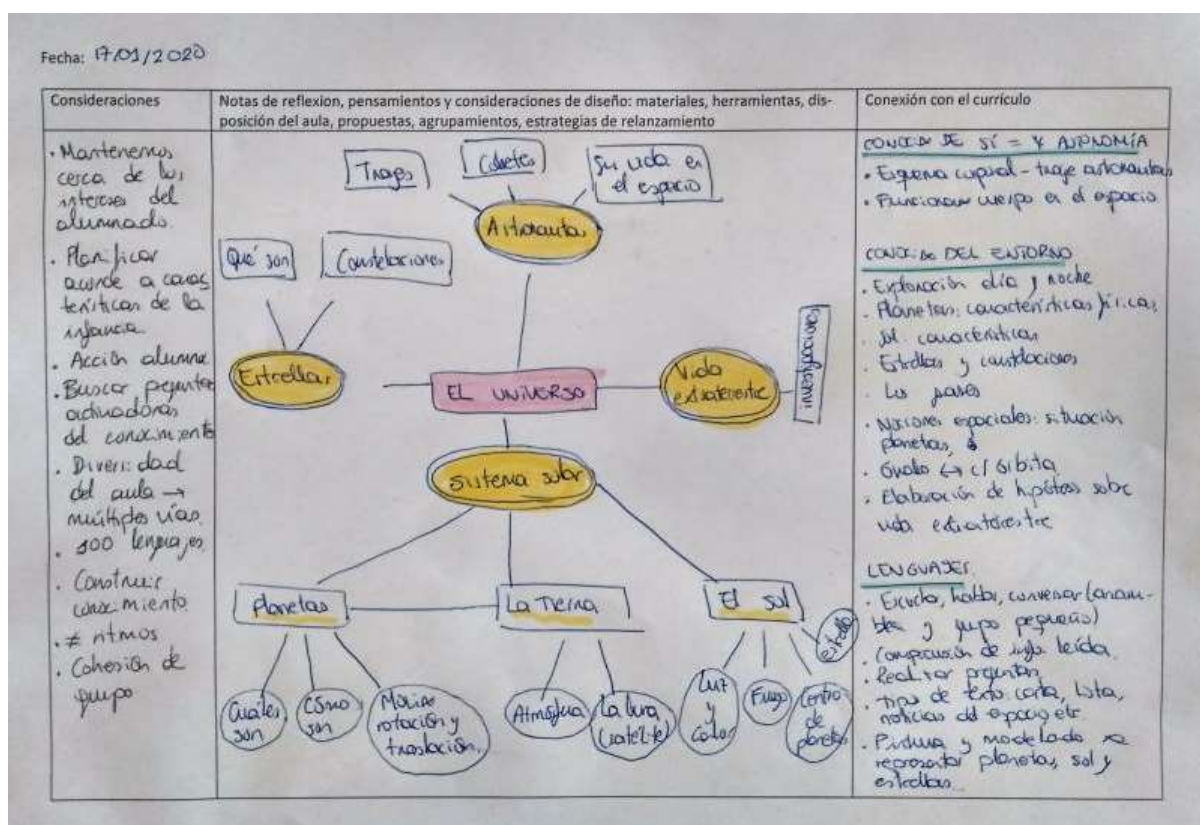 Fecha: 17/01/2020
Consideraciones
Notas de reflexion, pensamientos y consideraciones de diseño: materiales, herramientas, dis-
posición del aula, propuestas, agrupamientos, estrategias de relanzamiento
Conexión con el currículo
· Mantenernos
cerca de los
intereses del
alumnado.
· Planificar
acorde a carac
terísticas de la
infancia
· Acción alumna
· Buscar preguntas
activadoras
del conocimiento
· Diversidad
del aula →
múltiples vías.
· 100 lenguajes
· Construir
conocimiento
· ≠ ritmos
· Cohesión de
grupo
Trajes
Cohetes
Su vida en
el espacio
Astronautas
Qué son
Constelaciones
Estrellas
EL UNIVERSO
Vida
extraterrestre
investigaciones
Sistema solar
Planetas
La Tierra
El sol
Cuáles
son
Cómo
son
rotación y
traslación.
Atmósfera
La luna
(satélite)
Luz
y
Calor
Fuego
Centro
de
planetas
estrella
DE SÍ = Y AUTONOMÍA
· Esquema corporal - traje astronautas
· cuerpo en el espacio
DEL ENTORNO
· Exploración día y noche
· Planetas: características físicas,
sol características
· Estrellas y constelaciones
· Nociones espaciales: situación
planetas,
· Elaboración de hipótesis sobre
vida extraterrestre
LENGUAJES
· Escucha, hablar, conversar (asam-
blea y grupo pequeño)
· Comprensión de leída.
· Realizar preguntas
· Tipos de texto carta, lista,
noticias del espacio etc.
· Pintura y modelado
representar planetas, sol y
estrellas.